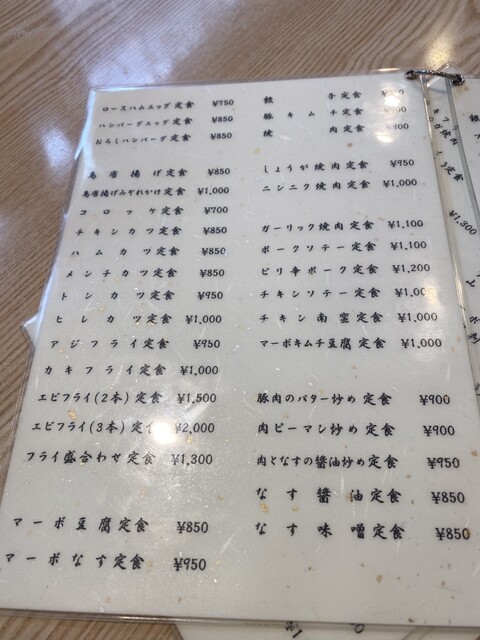 ロースハムエッグ定食 ¥750
ハンバーグエッグ定食 ¥850
おろしハンバーグ定食 ¥850
鳥唐揚げ定食 ¥850
鳥唐揚げみぞれかけ定食 ¥1,000
コロッケ定食 ¥700
チキンカツ定食 ¥850
ハムカツ定食 ¥850
メンチカツ定食 ¥850
トンカツ定食 ¥950
ヒレカツ定食 ¥1,000
アジフライ定食 ¥950
カキフライ定食 ¥1,000
エビフライ(2本)定食 ¥1,500
エビフライ(3本)定食 ¥2,000
フライ盛合わせ定食 ¥1,300
マーボ豆腐定食 ¥850
マーボなす定食 ¥950
餃子定食
豚キムチ定食
焼肉定食
しょうが焼肉定食 ¥950
ニンニク焼肉定食 ¥1,000
ガーリック焼肉定食 ¥1,100
ポークソテー定食 ¥1,100
ピリ辛ポーク定食 ¥1,200
チキンソテー定食
チキン南蛮定食 ¥1,000
マーボキムチ豆腐定食 ¥1,000
豚肉のバター炒め定食 ¥900
肉ピーマン炒め定食 ¥900
肉となすの醤油炒め定食 ¥950
なす醤油定食 ¥850
なす味噌定食 ¥850
¥1,300